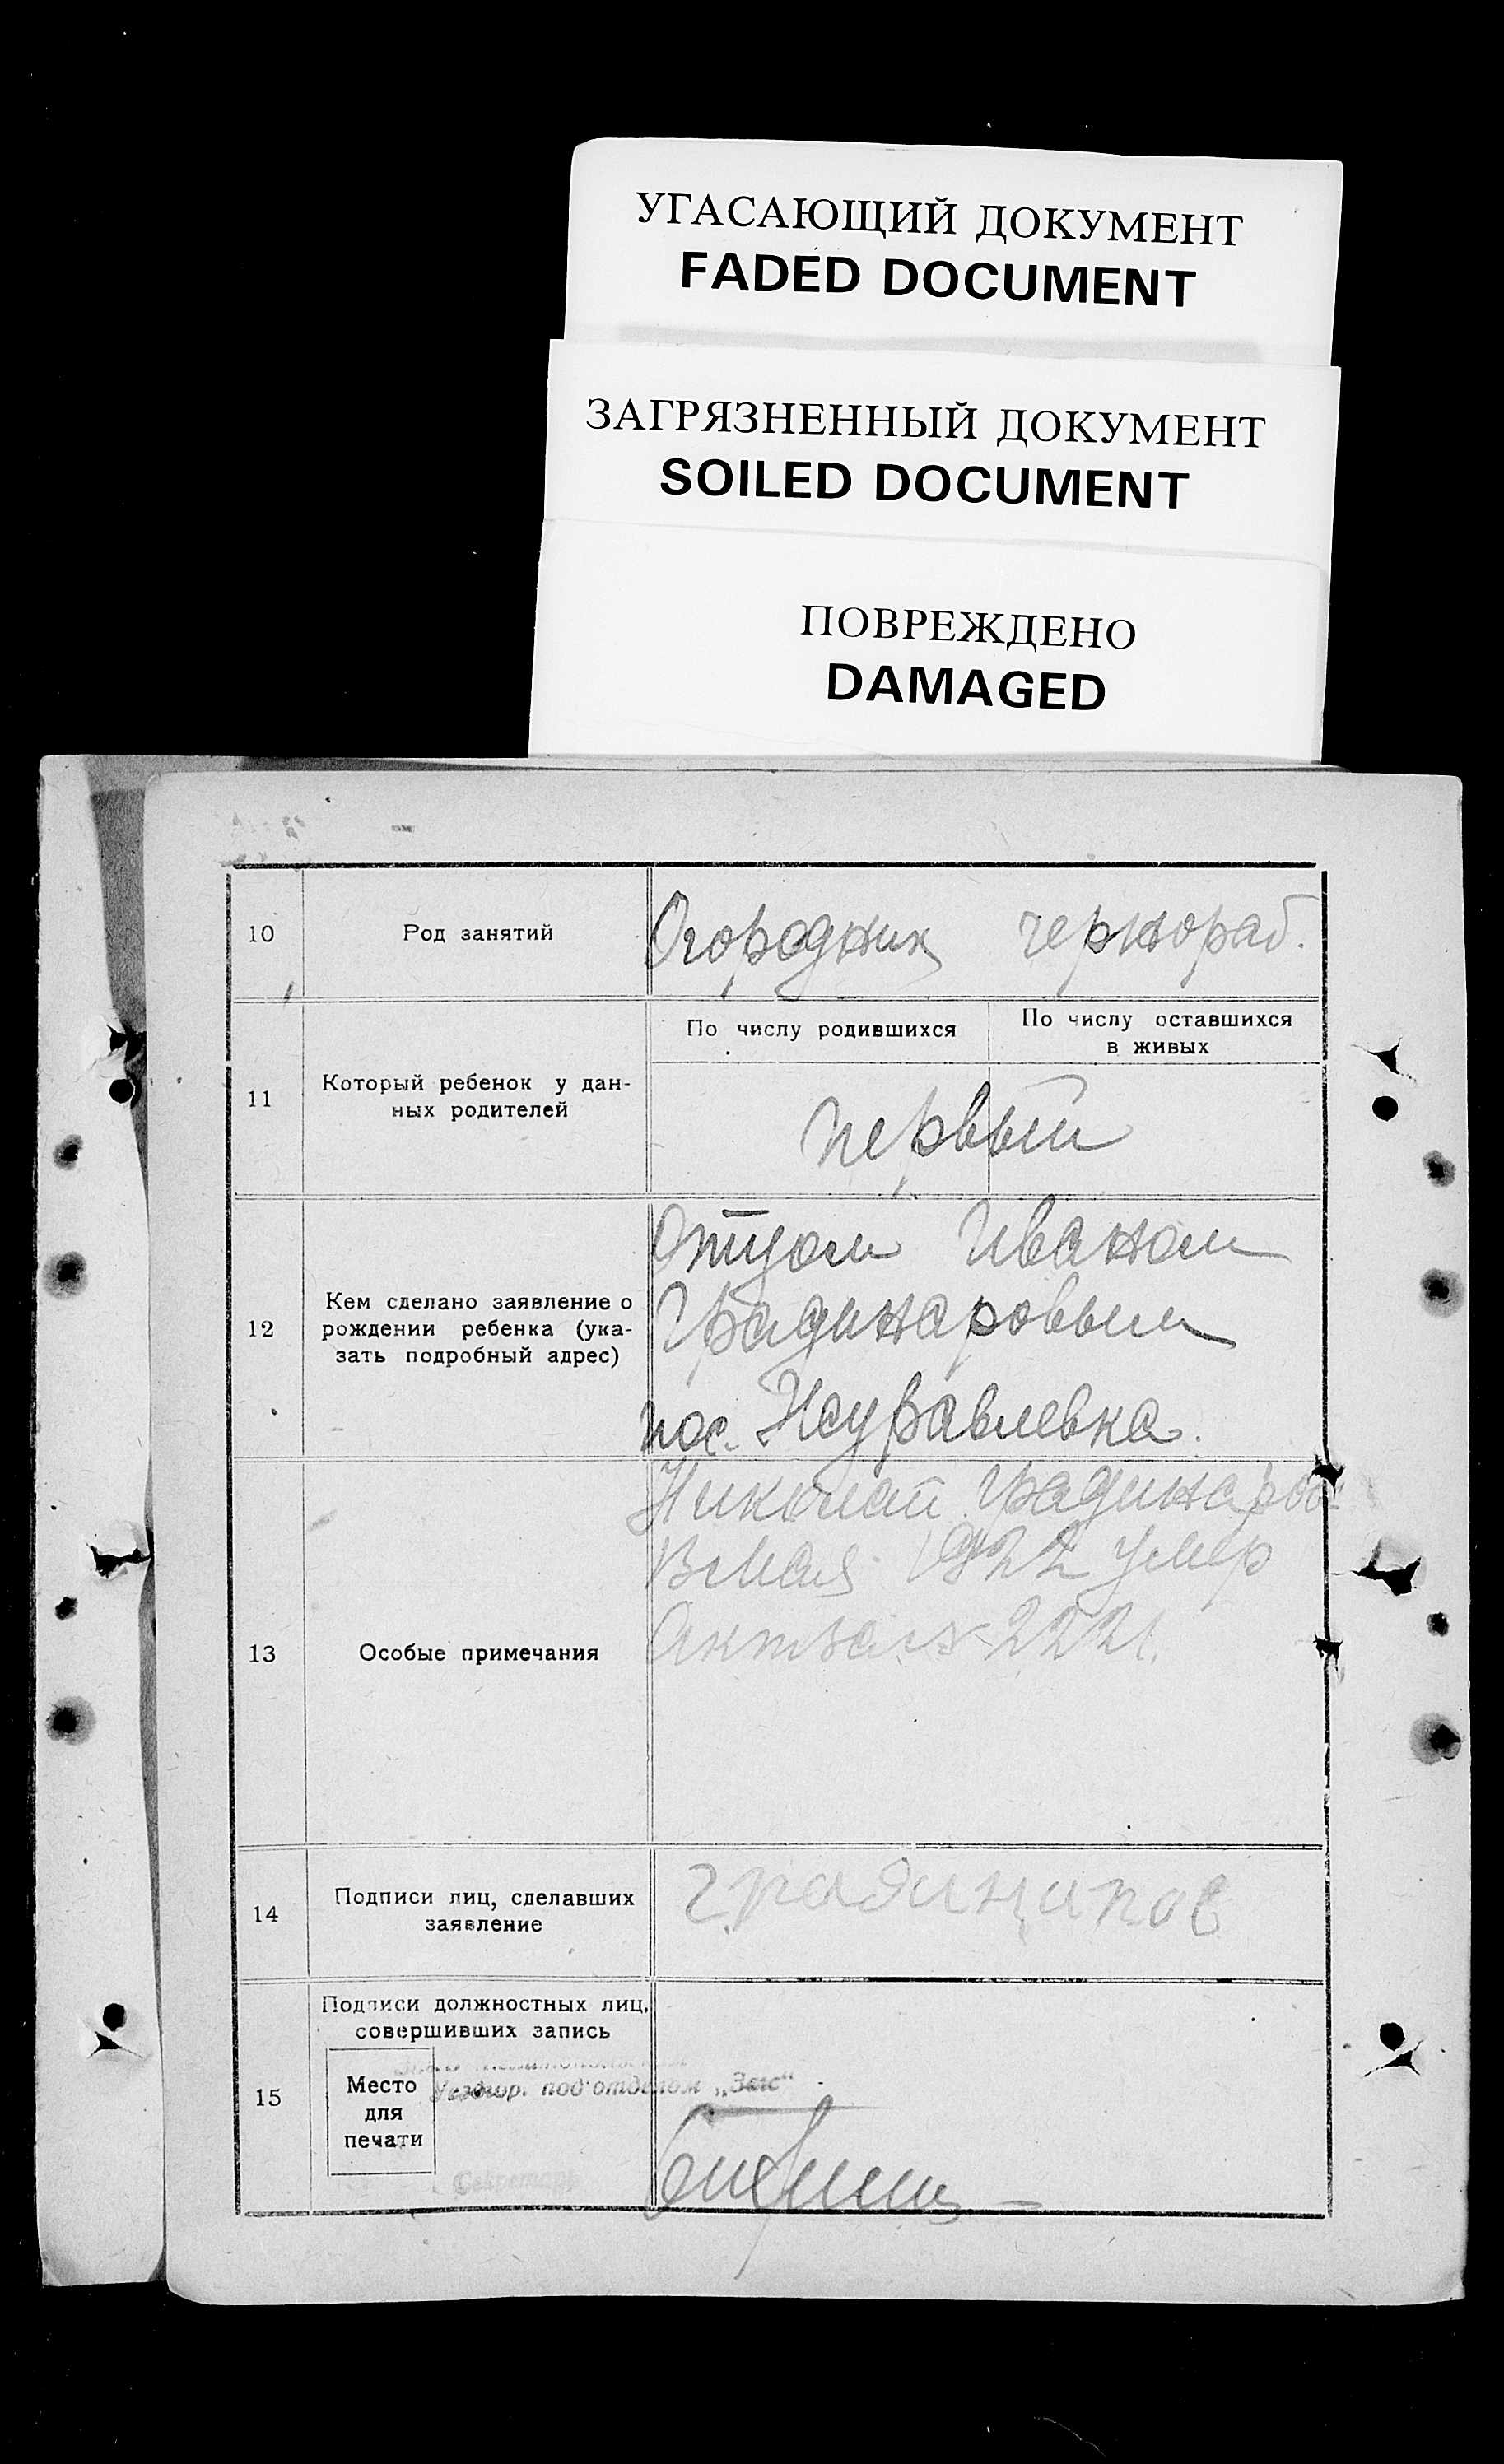 УГАСАЮЩИЙ ДОКУМЕНТ
FADED DOCUMENT
ЗАГРЯЗНЕННЫЙ ДОКУМЕНТ
SOILED DOCUMENT
ПОВРЕЖДЕНО
DAMAGED
10 Род занятий Огородник чернораб.
11 Который ребенок у дан-
ных родителей
По числу родившихся
По числу оставшихся
в живых
первый
12 Кем сделано заявление о
рождении ребенка (ука-
зать подробный адрес)
Отцом Иваном
Градинаровым
пос. Журавлевка.
13 Особые примечания
Николай Градинаров
В мая 1922 умер
Акт за № 2221.
14 Подписи лиц, сделавших
заявление
15 Подписи должностных лиц,
совершивших запись
Место
для
печати
Уездгор. подотделом „Загс“
Секретарь